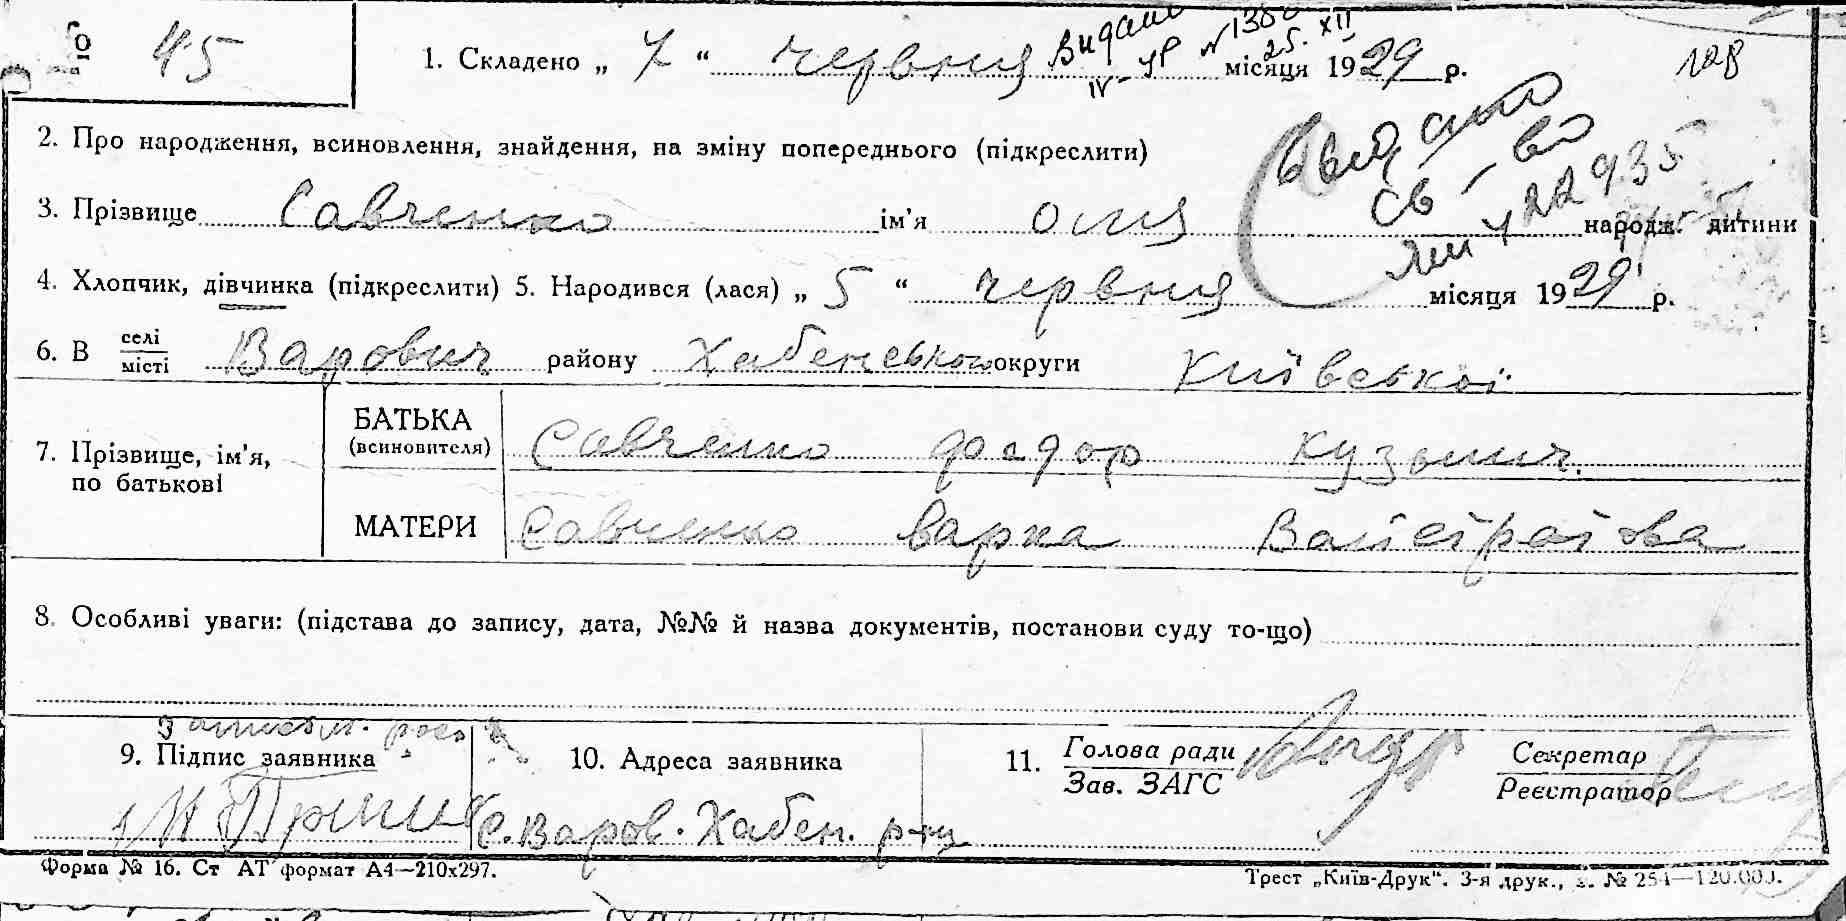 № 45
1. Складено „ 7 “ червня місяця 1929 р.
Видано
№ 1380
25. XII
IV-УР
2. Про народження, всиновлення, знайдення, на зміну попереднього (підкреслити)
св-во
3. Прізвище Савченко ім’я Оля народж. дитини
4. Хлопчик, дівчинка (підкреслити) 5. Народився (лася) „ 5 “ червня місяця 1929 р.
6. В селі
місті Варович району Хабенського округи Київської
7. Прізвище, ім’я,
по батькові
БАТЬКА
(всиновителя) Савченко Федор Кузьмич.
МАТЕРИ Савченко Варка
8. Особливі уваги: (підстава до запису, дата, №№ й назва документів, постанови суду то-що)
9. Підпис заявника
10. Адреса заявника
с. Варов. Хабен. р-на
11. Голова ради
Зав. ЗАГС
Секретар
Реєстратор
Форма № 16. Ст АТ формат А4—210х297.
Трест „Київ-Друк“. 3-я друк., з. № 254—120.000.